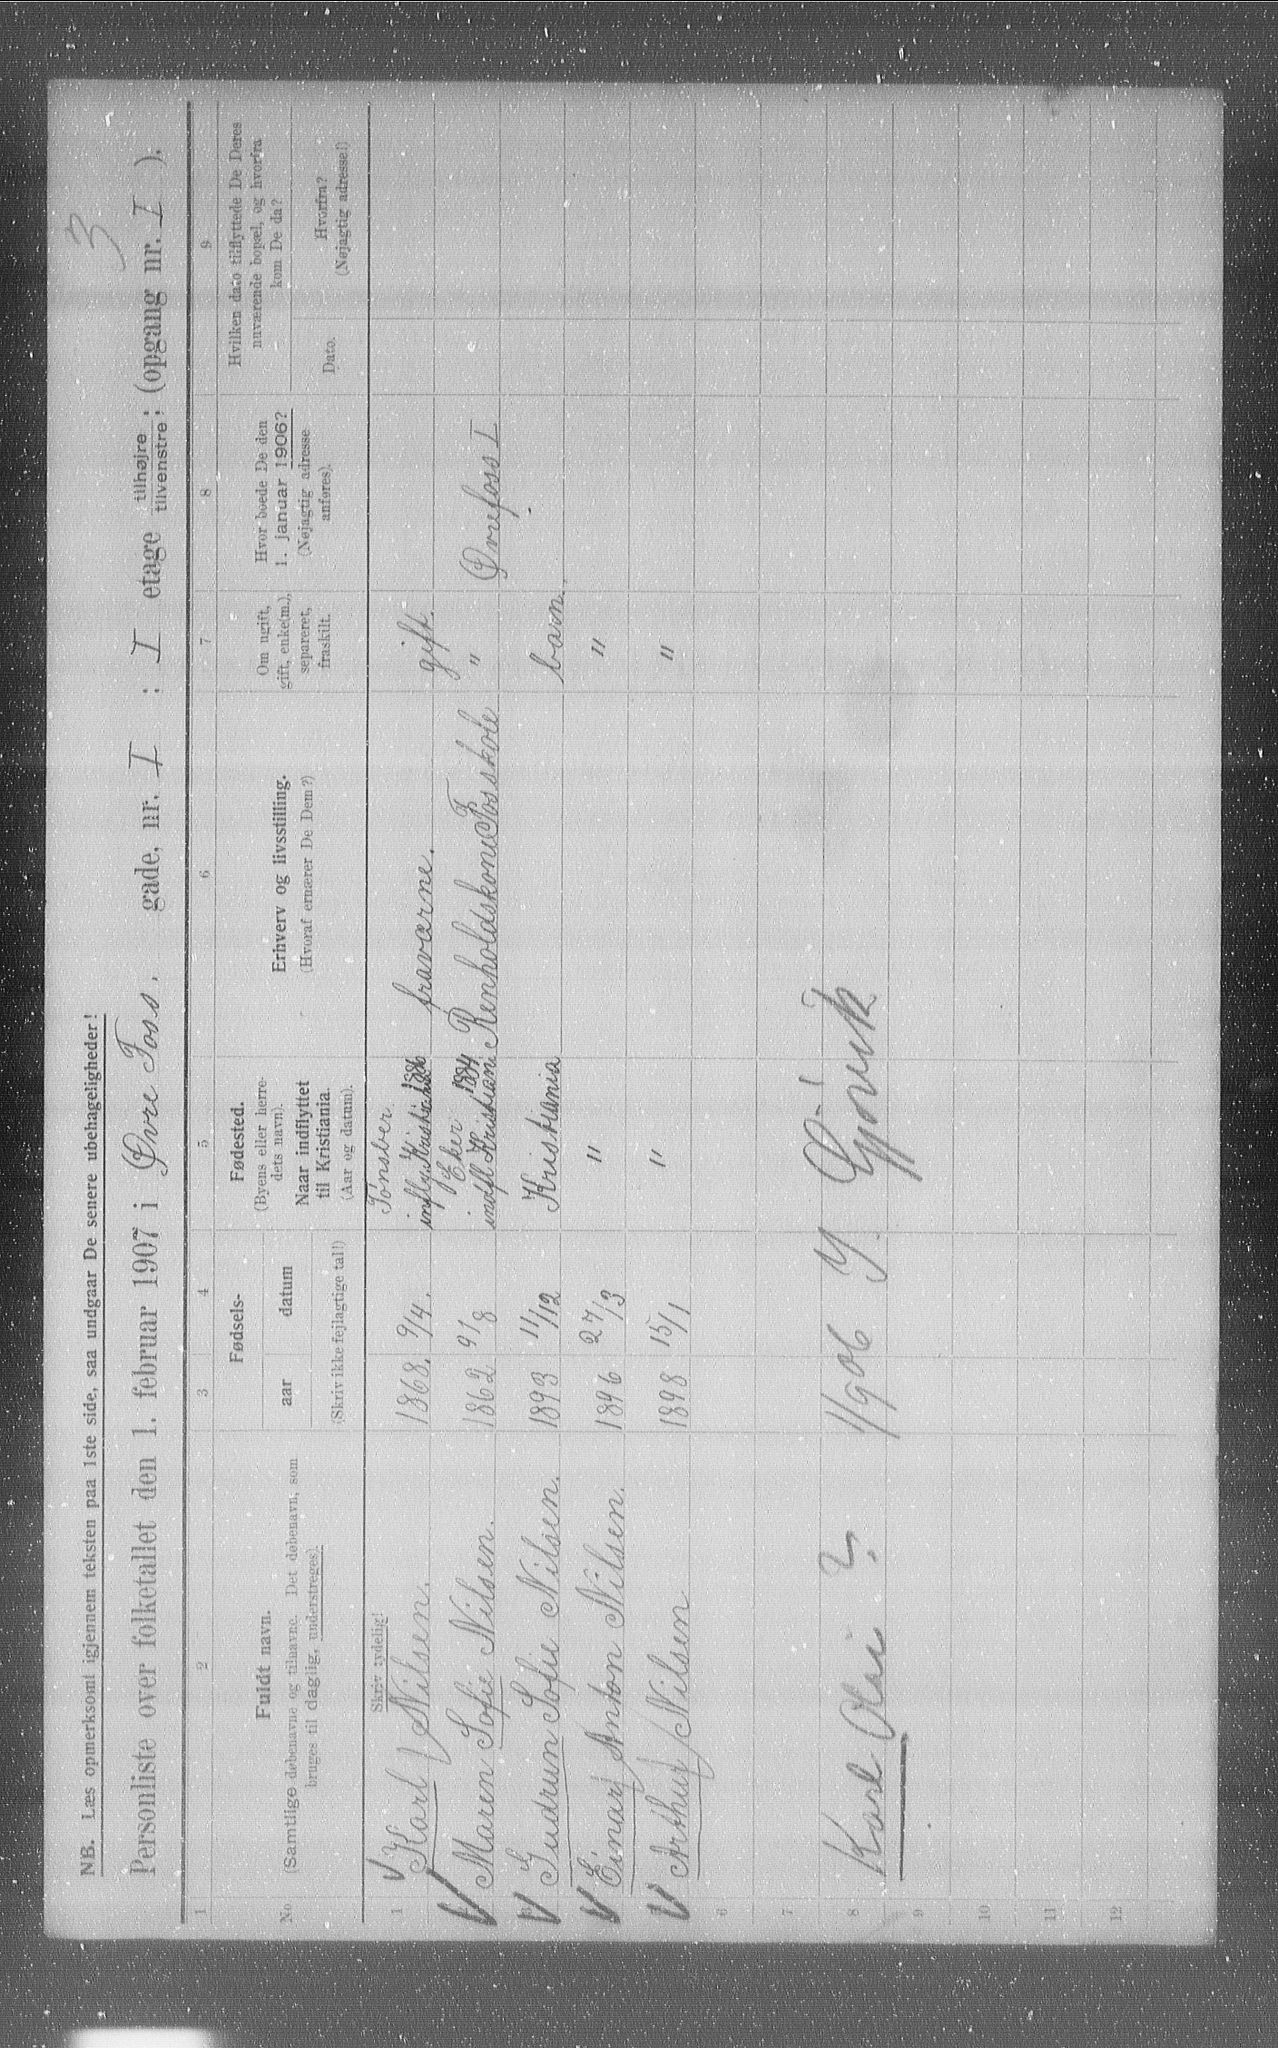 3
NB. Læs opmerksomt igjennem teksten paa 1ste side, saa undgaar De senere ubehageligheder!
Personliste over folketallet den 1. februar 1907 i Øvre Foss. gade, nr. I : I etage tilhøjre tilvenstre; (opgang nr. I ).
1 2 3 4 5 6 7 8 9
No. Fuldt navn. (Samtlige døbenavne og tilnavne. Det døbenavn, som bruges til daglig, understreges).
Fødsels- aar datum (Skriv ikke fejlagtige tal!)
Fødested. (Byens eller herredets navn). Naar indflyttet til Kristiania. (Aar og datum).
Erhverv og livsstilling. (Hvoraf ernærer De Dem?)
Om ugift, gift, enke(m.), separeret, fraskilt.
Hvor boede De den 1. januar 1906? (Nøjagtig adresse anføres).
Hvilken dato tilflyttede De Deres nuværende bopæl, og hvorfra kom De da?
Dato. Hvorfra? (Nøjagtig adresse!)
Skriv tydelig!
1 Karl Nilsen. 1868. 9/4. Tønsber. infly. Kristiania 1886 fraværne. gift.
Maren Sofie Nilsen. 1862 9/8 Eker indfl Kristiani 1894 Renholdskone Fosskole " Øvrefoss I
Gudrun Sofie Nilsen. 1893 11/12 Kristiania barn.
Einar Anton Nilsen. 1896 27/3 " "
Arthur Nilsen 1898 15/1 " "
6
7
8 Karl Olai ? 11/9 06 Gjøvik
9
10
11
12